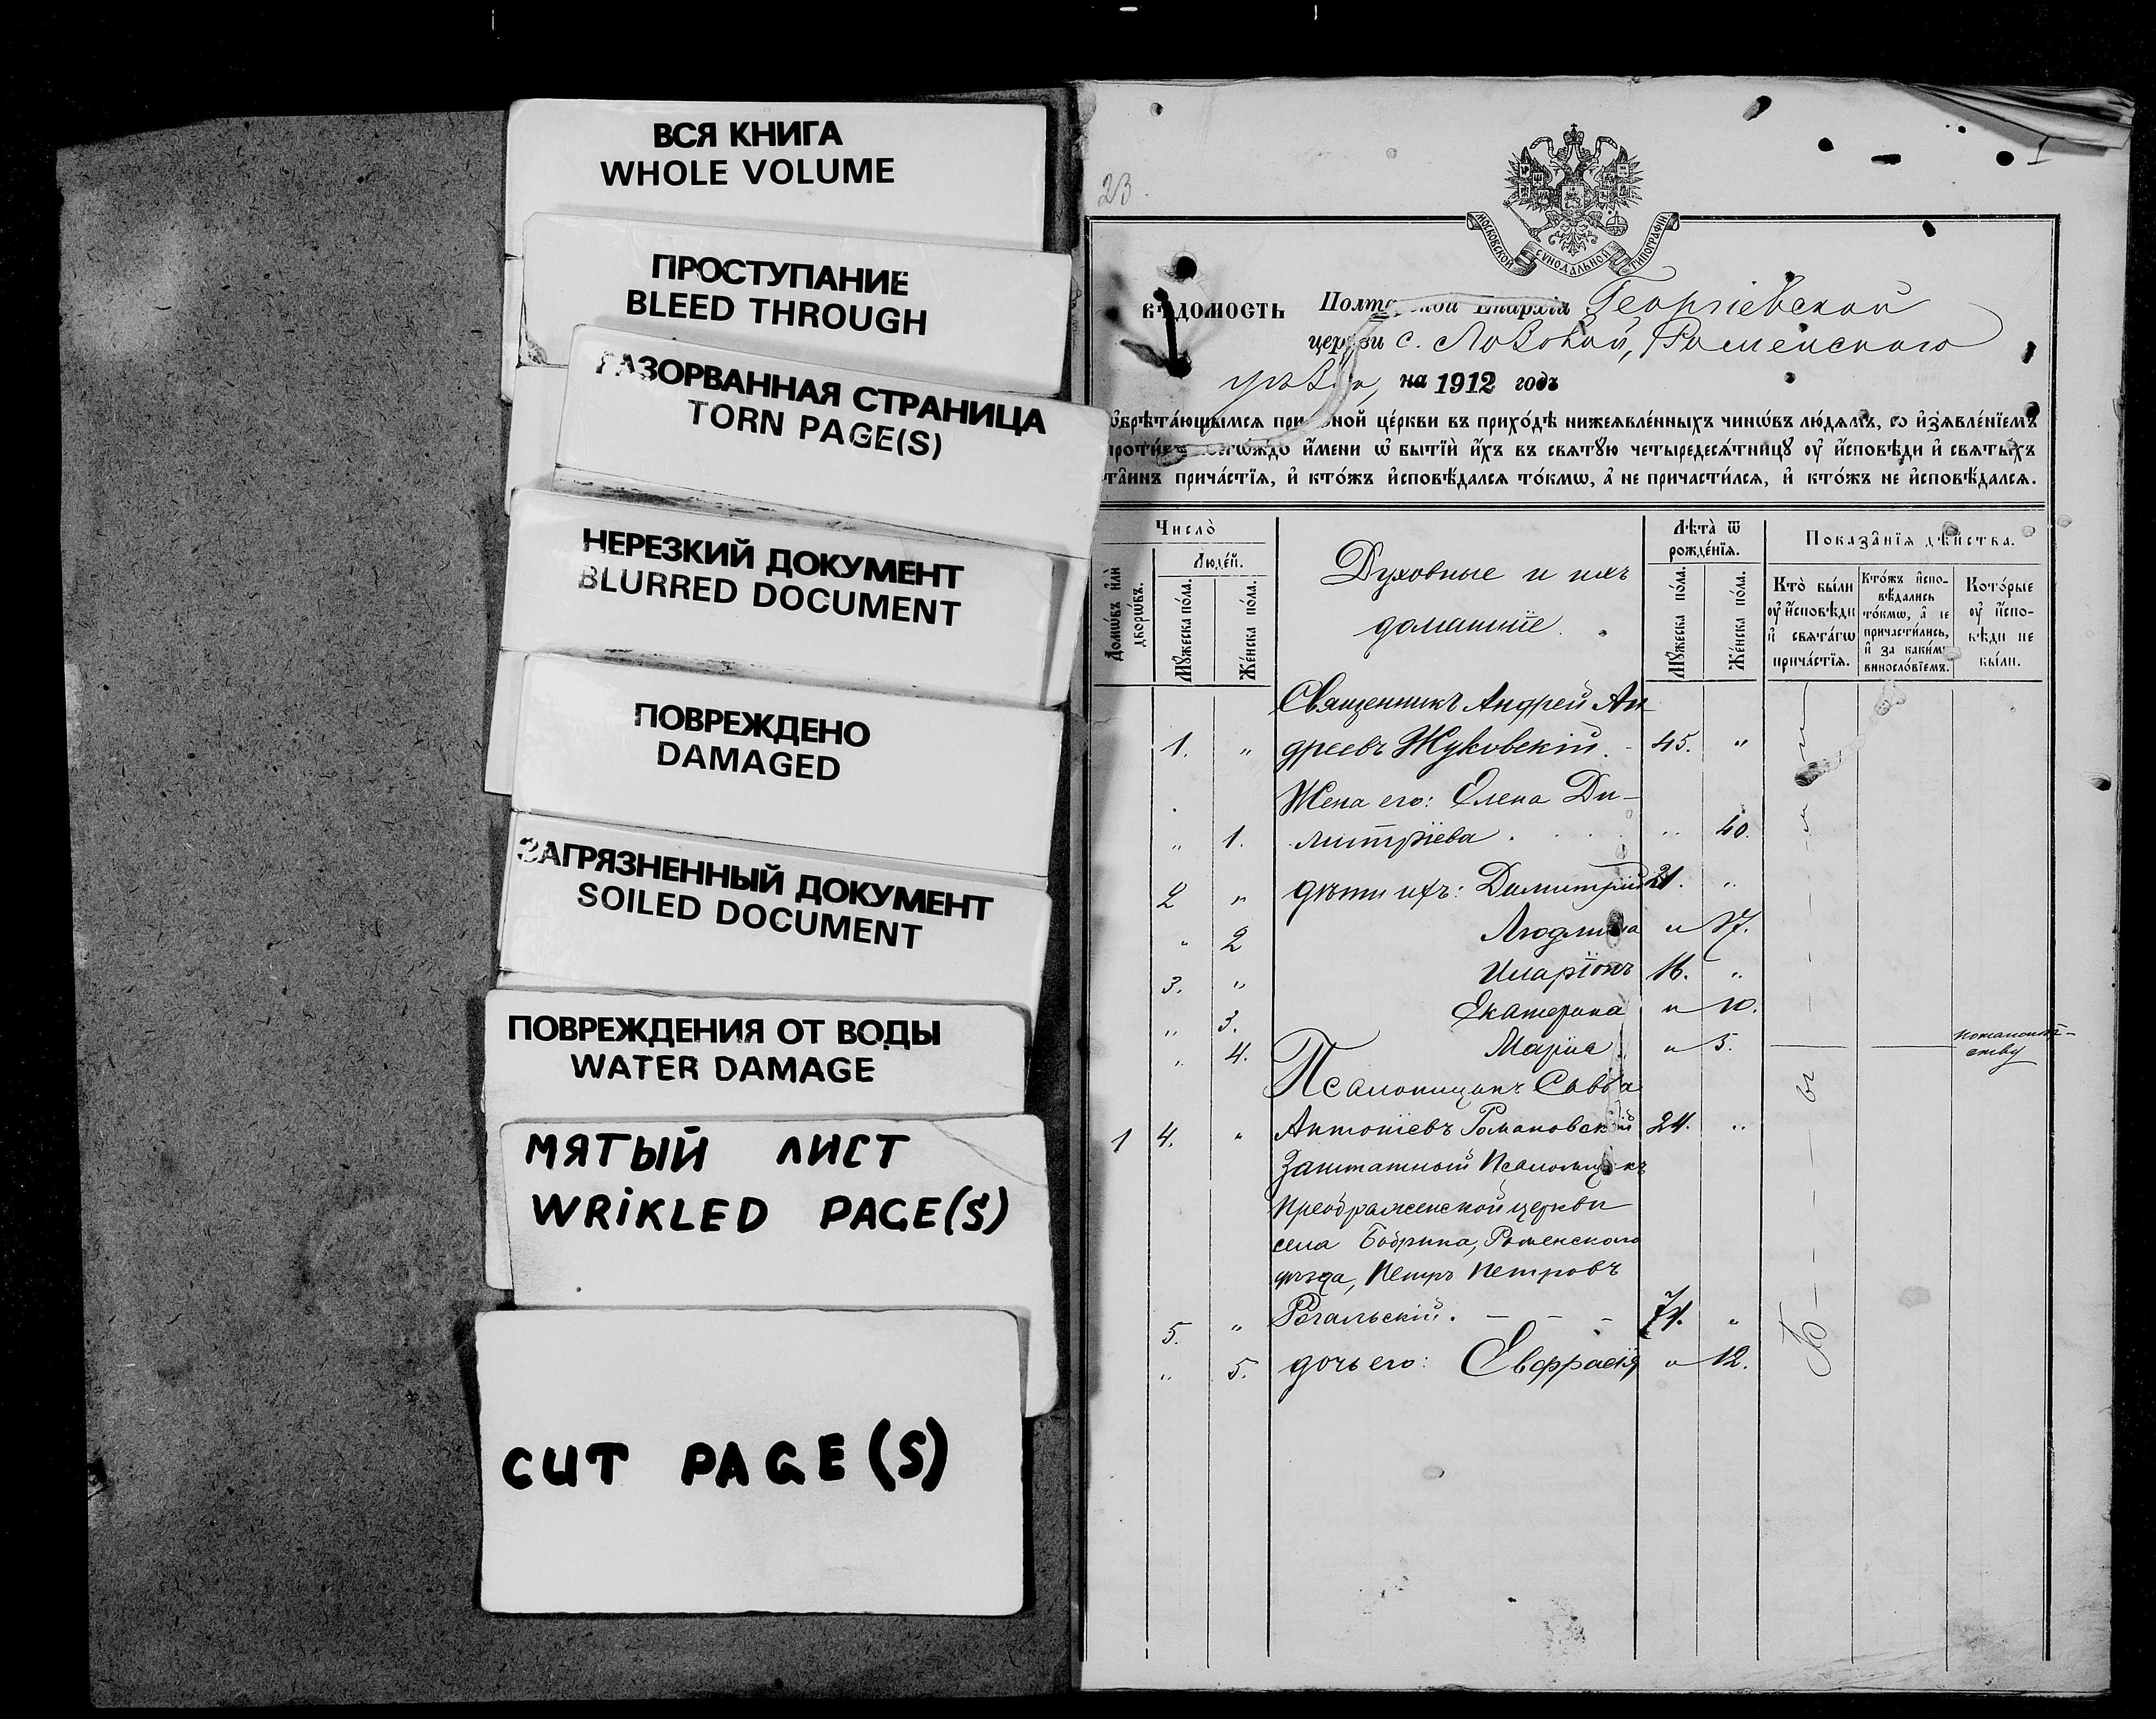 ВСЯ КНИГА
WHOLE VOLUME
ПРОСТУПАНИЕ
BLEED THROUGH
РАЗОРВАННАЯ СТРАНИЦА
TORN PAGE(S)
НЕРЕЗКИЙ ДОКУМЕНТ
BLURRED DOCUMENT
ПОВРЕЖДЕНО
DAMAGED
ЗАГРЯЗНЕННЫЙ ДОКУМЕНТ
SOILED DOCUMENT
ПОВРЕЖДЕНИЯ ОТ ВОДЫ
WATER DAMAGE
МЯТЫЙ ЛИСТ
WRiKLED PAGE(S)
CUT PAGE(S)
23.
1
МОСКОВСКОЙ СѴНОДАЛЬНОЙ ТИПОГРАФІИ
ВѢДОМОСТЬ Полтавской Епархіи Георгіевской
церкви с. Лозовой, Роменскаго
уѣзда, на 1912 годъ
ѡбрѣта́ющымсѧ при ѻной це́ркви въ прихо́дѣ нижеѧвле́нныхъ чинѡ́въ лю́дѧмъ, со и҆з̾ѧвле́нїемъ
проти́въ коегѡ́ждо и҆́мени ѡ҆ бытїѝ и҆́хъ въ свѧту́ю четыредесѧ́тницу ᲂу҆ и҆́сповѣди и҆ свѧты́хъ
та̑инъ прича́стїѧ, и҆ кто́жъ и҆сповѣ́далсѧ то́кмѡ, а҆ не причасти́лсѧ, и҆ кто́жъ не и҆сповѣ́далсѧ.
Число̀
Людей.
Домѡ́въ и҆лѝ дворѡ́въ.
Мꙋ́жеска по́ла.
Же́нска по́ла.
Духовные и ихъ
домашніе.
Лѣта̀ ѿ рожде́нїѧ.
Мꙋ́жеска по́ла.
Же́нска по́ла.
Показа̑нїѧ дѣ́йства.
Кто̀ бы́ли ᲂу҆ и҆́сповѣди и҆ свѧта́гѡ прича́стїѧ.
Кто́жъ и҆сповѣ́дались то́кмѡ, а҆ не причасти́лись, и҆ за каки́мъ виносло́вїемъ.
Кото́рые ᲂу҆ и҆́сповѣди не бы́ли.
Священникъ Андрей Ан-
1. " дреевъ Жуковскій. - 45. "
Жена его: Елена Ди-
" 1. митріева . " 40.
2 " дѣти ихъ: Димитрій 21. "
" 2 Людмила " 17.
3. " Иларіонъ 16. "
" 3. Екатерина " 10.
" 4. Марія " 5.
Псаломщикъ Савва
1 4. " Антоніевъ Романовскій 24. "
Заштатный псаломщикъ
Преображенской церкви
села Бобрика, Роменскаго
уѣзда, Петръ Петровъ
5. " Рогальскій. - - - 74. "
" 5. дочь его: Евфрасія " 12.